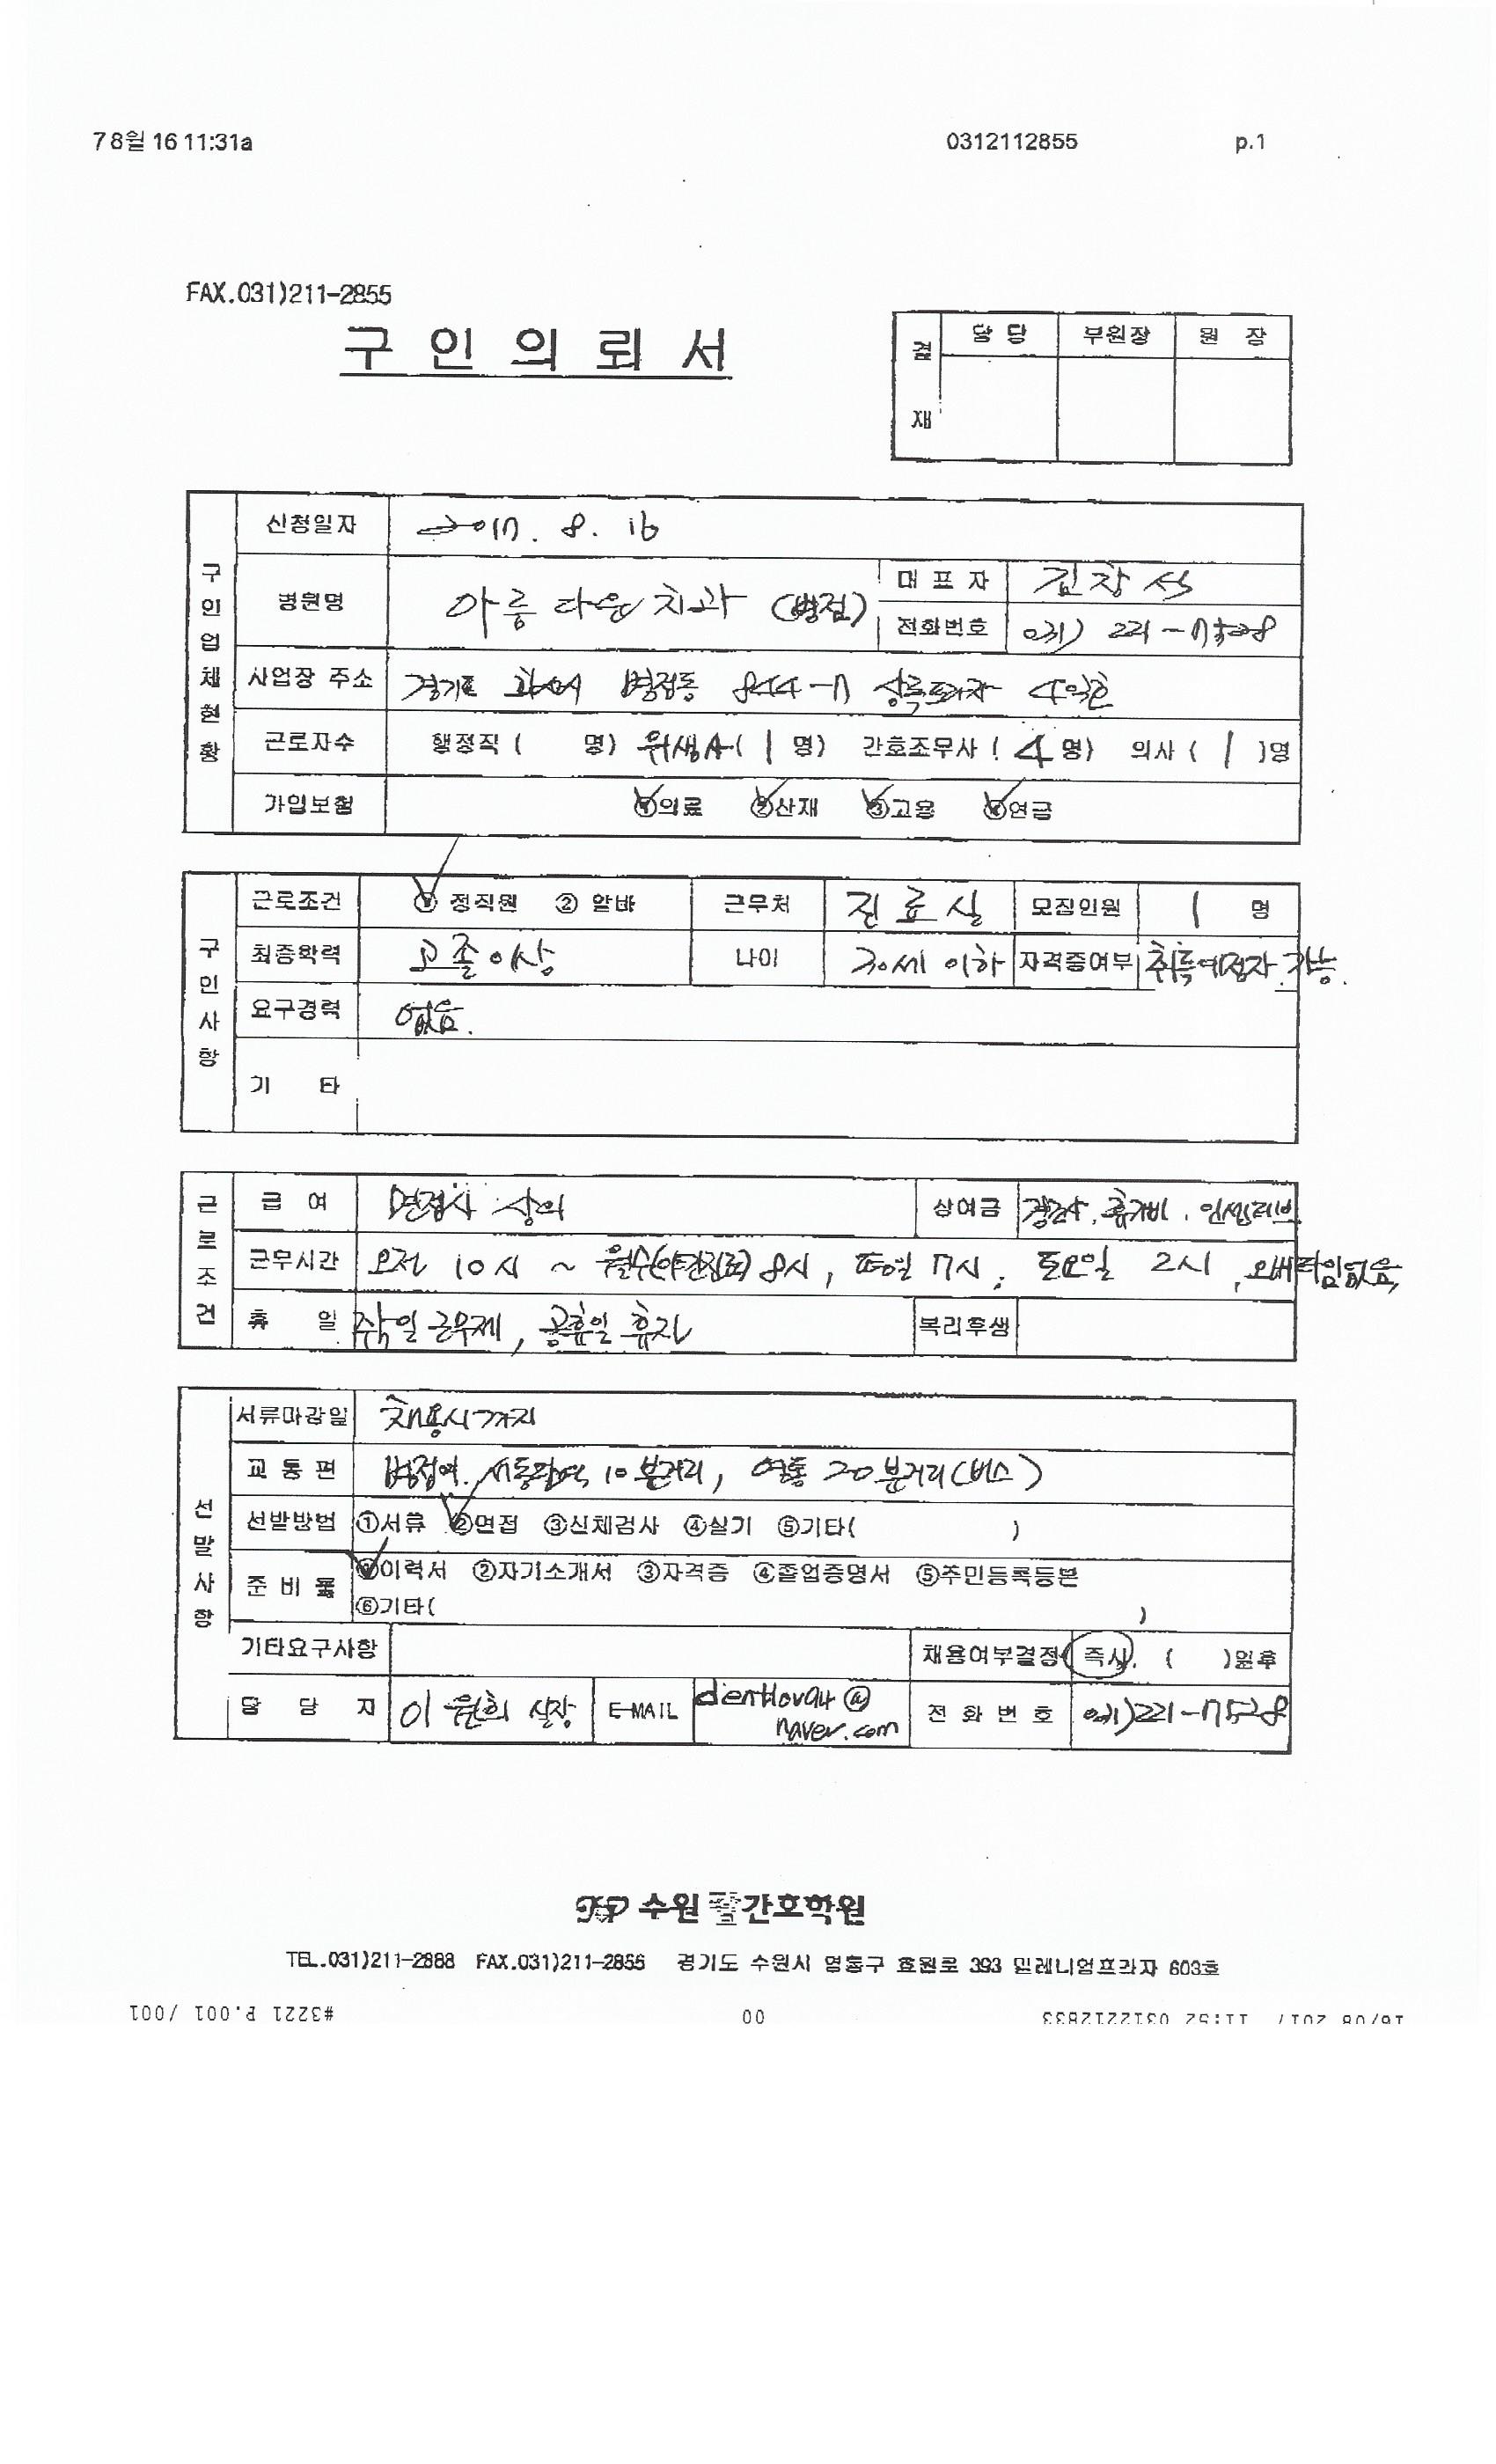 78월 16 11:31a 0312112855 p.1
FAX.031)211-2855
구 인 의 뢰 서
결 재 담 당 부원장 원 장
구인업체현황
신청일자 2017. 8. 16
병원명 아름다운치과 (병점) 대 표 자 김창석
전화번호 031) 221-7528
사업장 주소 경기도 화성시 병점동 844-7 상록프라자 4약호
근로자수 행정직 ( 명) 위생사( 1 명) 간호조무사 ( 4 명) 의사 ( 1 )명
가입보험 ①의료 ②산재 ③고용 ④연금
구인사항
근로조건 ① 정직원 ② 알바 근무처 진료실 모집인원 1 명
최종학력 고졸이상 나이 30세 이하 자격증여부 취득예정자 가능.
요구경력 없음.
기 타
근로조건
급 여 면접시 상의 상여금 명절, 휴가비, 인센티브
근무시간 오전 10시 ~ 월수(야간진료) 8시, 평일 7시, 토요일 2시, 오버타임없음,
휴 일 주5일 근무제, 공휴일 휴진 복리후생
선발사항
서류마감일 채용시까지
교 통 편 병점역, 서동탄역 10분거리, 영통 20분거리(버스)
선발방법 ①서류 ②면접 ③신체검사 ④실기 ⑤기타( )
준 비 물 ①이력서 ②자기소개서 ③자격증 ④졸업증명서 ⑤주민등록등본
⑥기타( )
기타요구사항 채용여부결정 즉시, ( )일후
담 당 자 이원희 실장 E-MAIL denttov94@
naver.com 전 화 번 호 031)221-7528
수원 간호학원
TEL.031)211-2888 FAX.031)211-2855 경기도 수원시 영통구 효원로 393 밀레니엄프라자 603호
16/08 2017 11:52 0312212833 00 #3221 P.001 /001